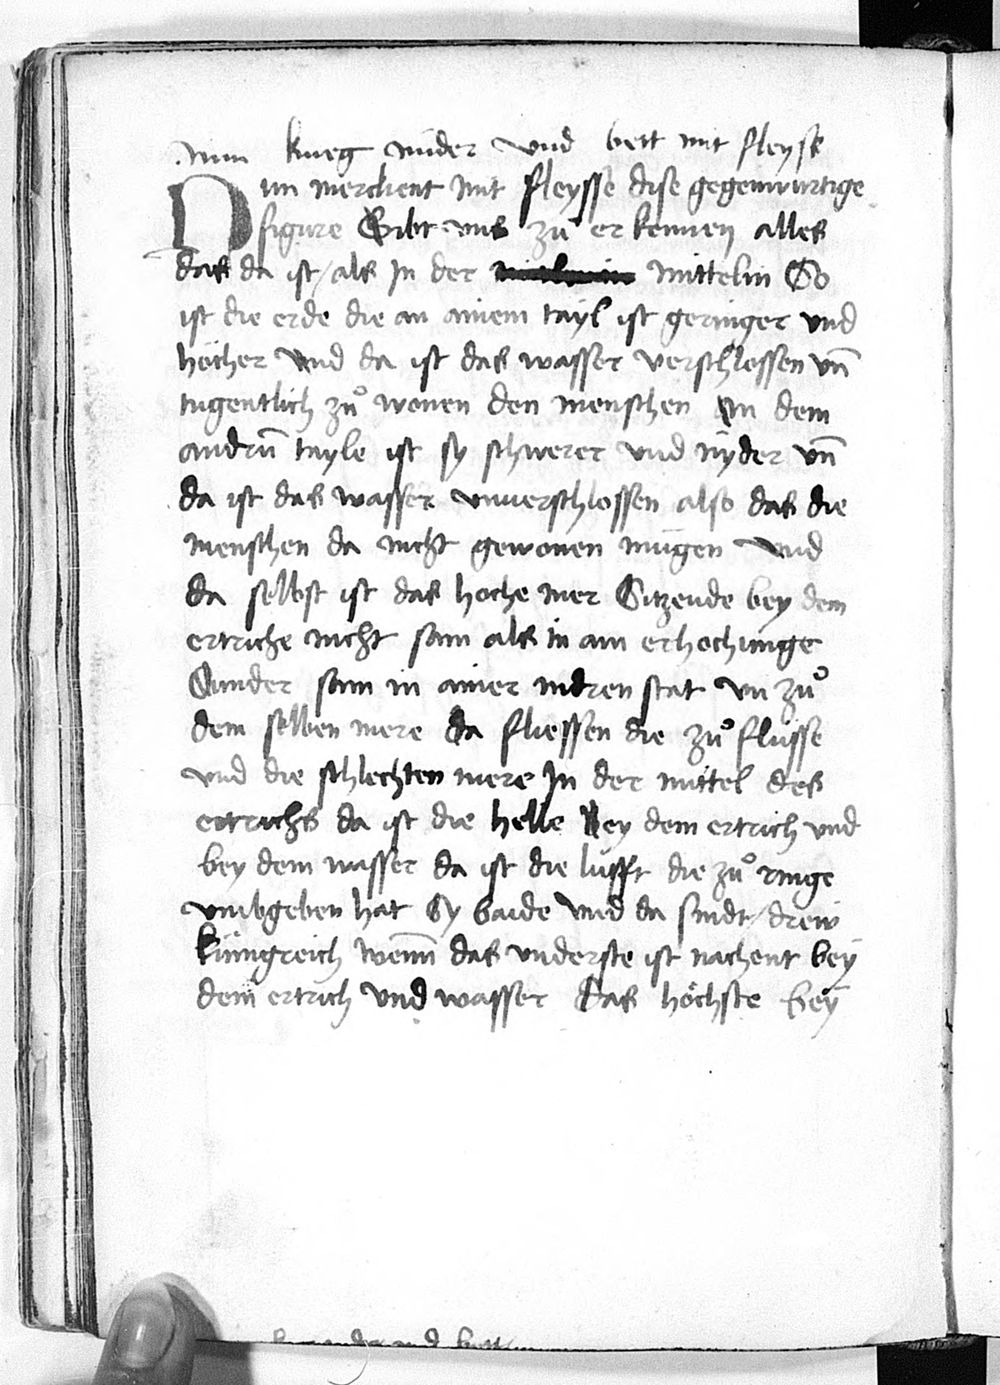 Nun kneg nider vnd bett mit fleysß
Nun merckent mit fleysse dise gegenwurtige
figure Gibt vns zů erkennen alles
das da ist / als Jn der mittelin So
ist die erde die an ainem tayl ist geringer vnd
höcher vnd da ist das wasser verschlossen vn̄
tugentlich zů wonen den menschen Jn dem
andrn̄ tayle ist sy schwerer vnd nyder vn̄
da ist das wasser vnuerschlossen also das die
menschen da nicht gewonen mügen vnd
da selbst ist das hoche mer Sitzende bey dem
ertriche nicht sam als in ain erhochunge
Sunder sam in ainer nidren stat vn zů
dem selben mere da fliessen die zů flüsse
vnd die schlechten mere Jn der mittel des
ertrichs da ist die helle Bey dem ertrich vnd
bey dem wasser da ist die lufft die zů ringe
vmbgeben hat Sy baide vnd da sindt / drew
künigreich wenn̄ das vnderste ist nachent bey
dem ertrich vnd wasser Das höchste bey